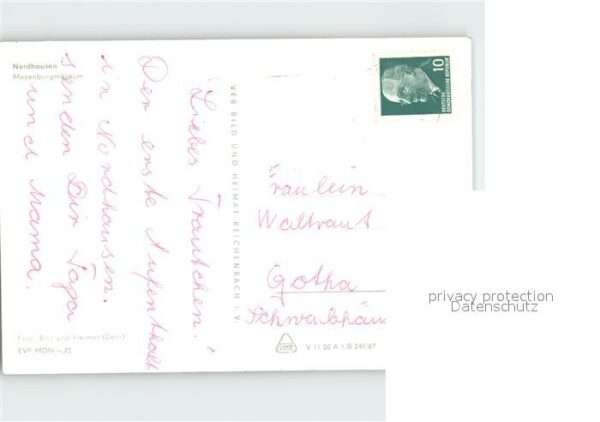 Nordhausen
Meyenburgmuseum
Liebes Trautchen!
Der erste Aufenthalt
in Nordhausen.
senden Dir Papa
und Mama.
VEB BILD UND HEIMAT REICHENBACH I. V.
10
DEUTSCHE
DEMOKRATISCHE REPUBLIK
Fräulein
Waltraut
Gotha
Schwabhäu
privacy protection
Datenschutz
Foto: Bild und Heimat (Dörr)
EVP MDN -,25
V 11 50 A 1 B 249/67